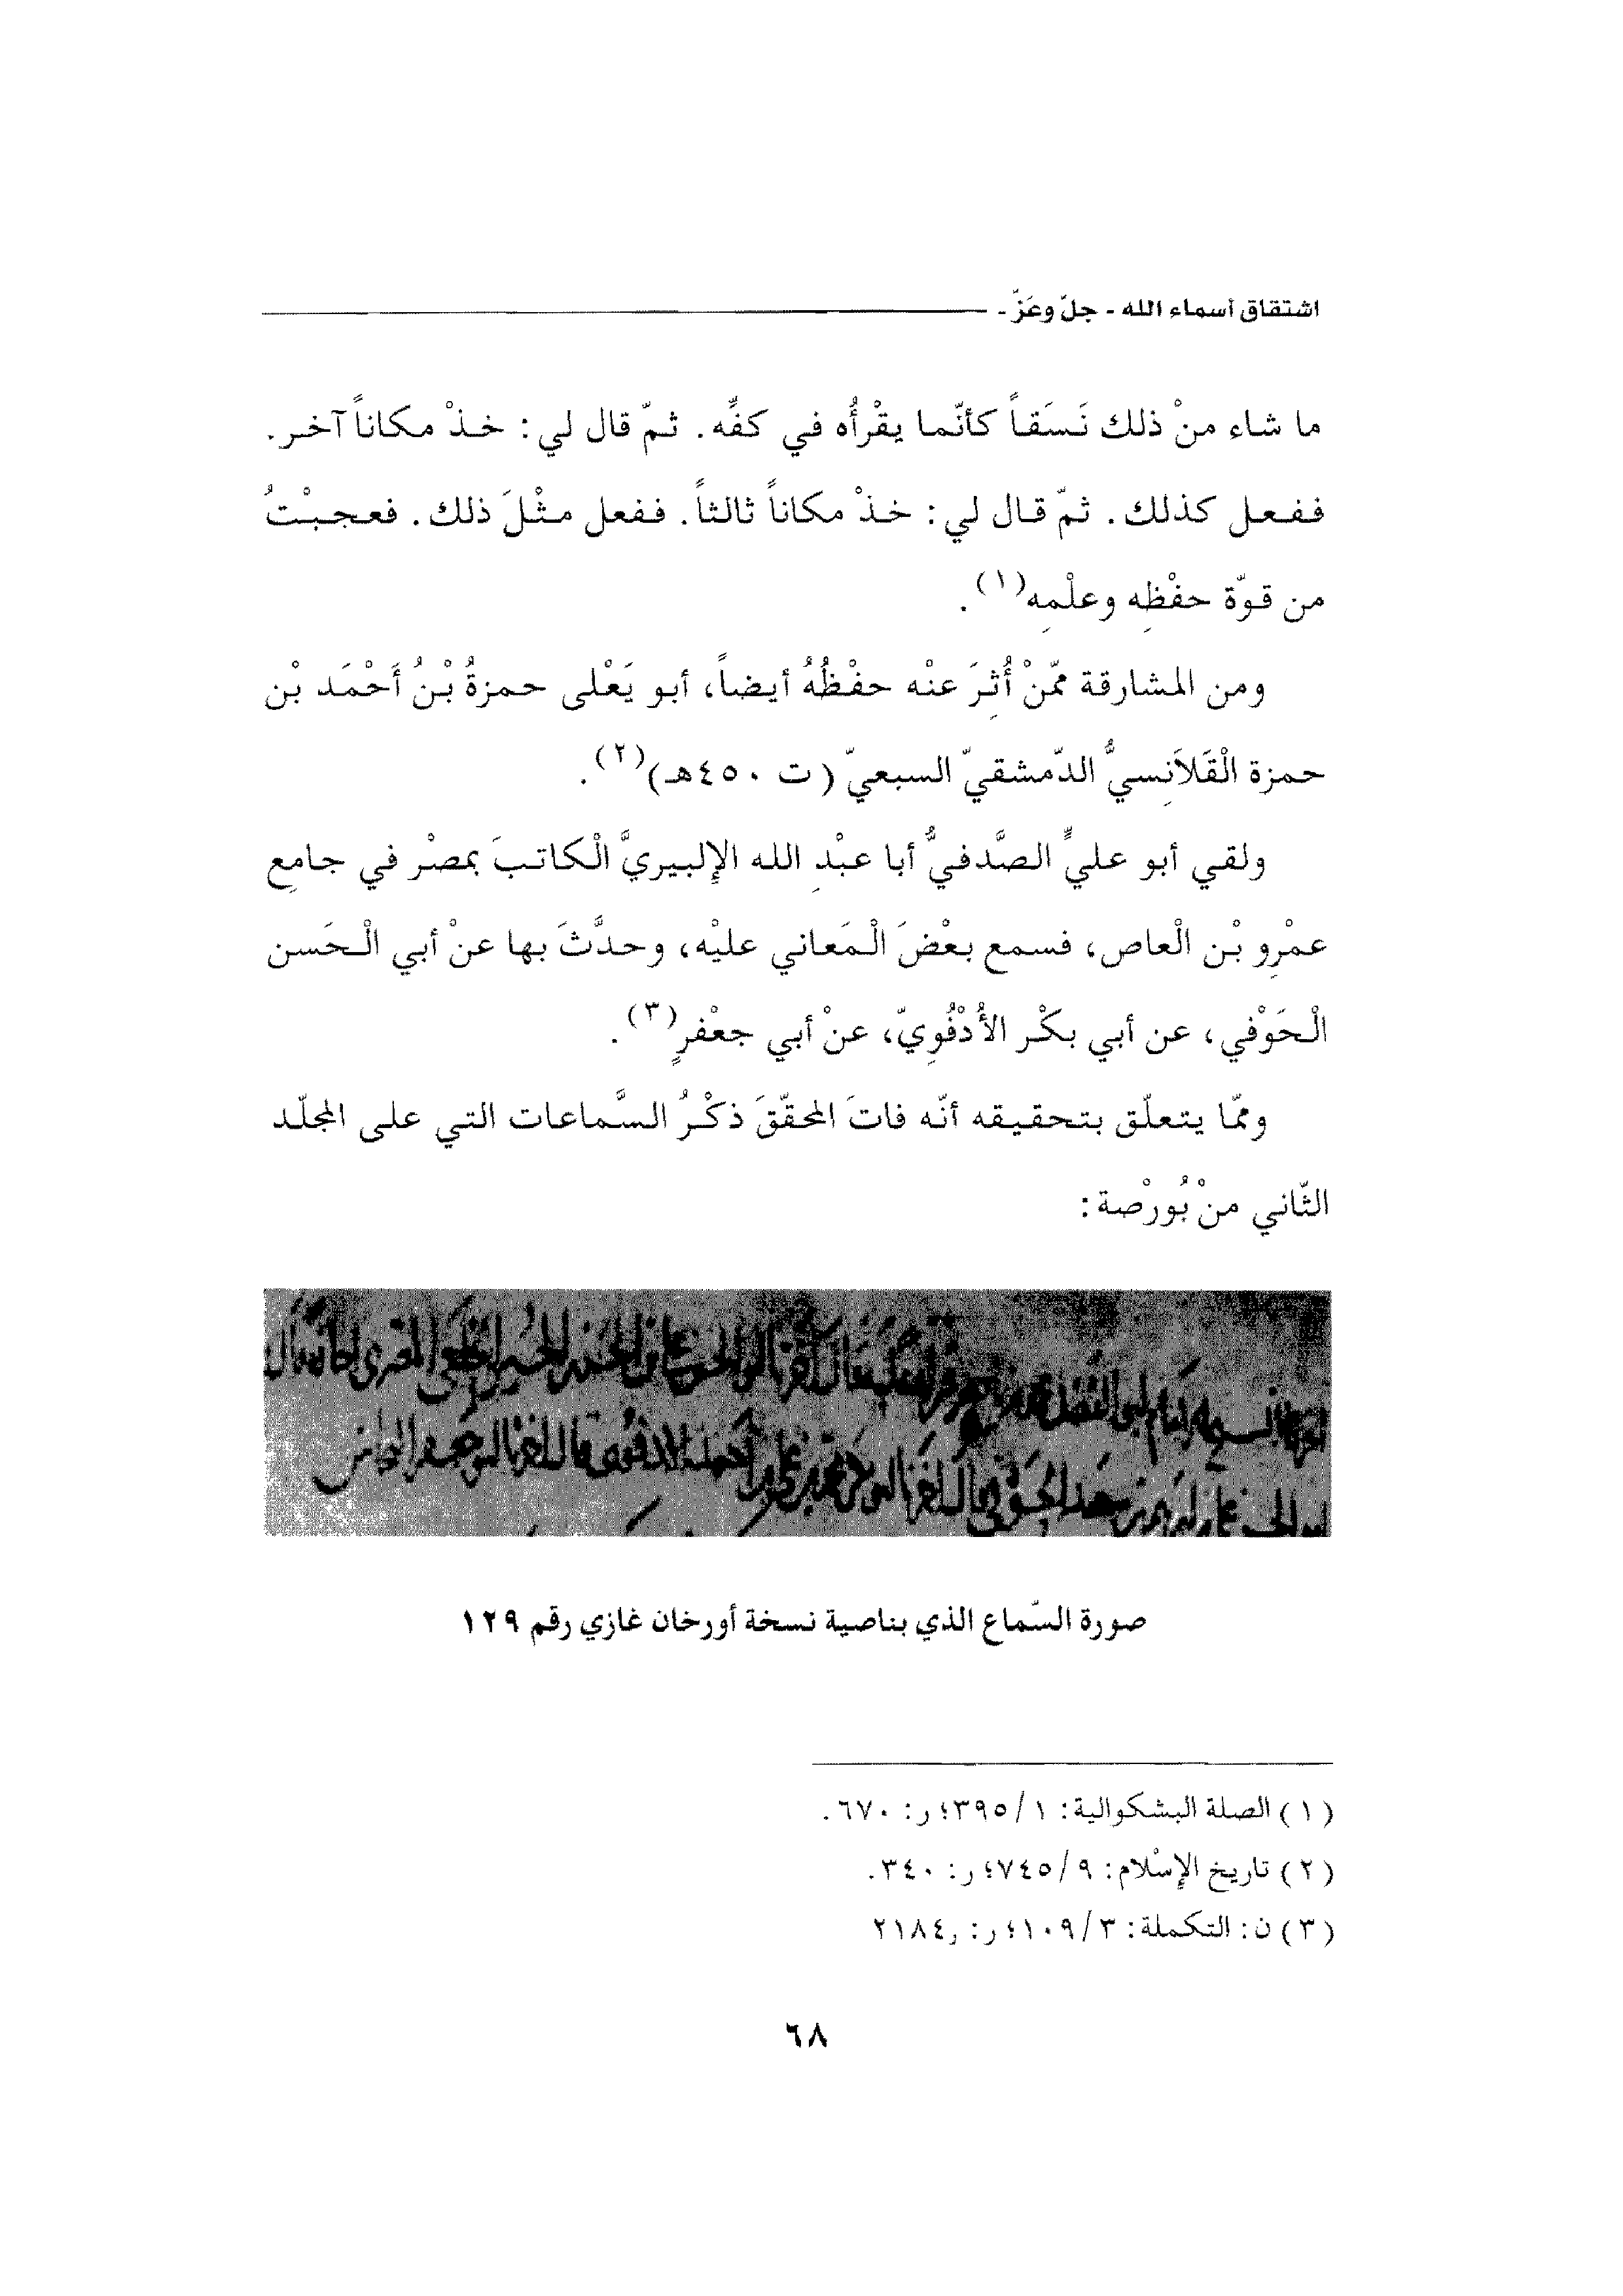 اشتقاق أسماء الله - جلّ وعَزّ -
ما شاء منْ ذلك نَسَقاً كأنّما يقْرأُه في كفِّه. ثمّ قال لي: خذْ مكاناً آخر.
ففعل كذلك. ثمّ قال لي: خذْ مكاناً ثالثاً. ففعل مثْلَ ذلك. فعجبْتُ
من قوّة حفْظِه وعلْمِه(١).
ومن المشارقة ممّنْ أُثِرَ عنْه حفْظُهُ أيضاً، أبو يَعْلى حمزةُ بْنُ أَحْمَد بْن
حمزة الْقَلاَنِسيُّ الدّمشقيّ السبعيّ (ت ٤٥٠هـ)(٢).
ولقي أبو عليٍّ الصَّدفيُّ أبا عبْدِ الله الإلبيريَّ الْكاتبَ بمصْر في جامِع
عمْرِو بْن الْعاص، فسمع بعْضَ الْمَعاني عليْه، وحدَّثَ بها عنْ أبي الْحَسن
الْحَوْفي، عن أبي بكْر الأُدْفُوِيّ، عنْ أبي جعْفرٍ(٣).
وممّا يتعلّق بتحقيقه أنّه فاتَ المحقّقَ ذكْرُ السَّماعات التي على المجلّد
الثّاني منْ بُورْصة:
صورة السّماع الذي بناصية نسخة أورخان غازي رقم ١٢٩
(١) الصلة البشكوالية: ١/ ٣٩٥؛ ر: ٦٧٠.
(٢) تاريخ الإسْلام: ٩/ ٧٤٥؛ ر: ٣٤٠.
(٣) ن: التكملة: ٣/ ١٠٩؛ ر: ر٢١٨٤
٦٨